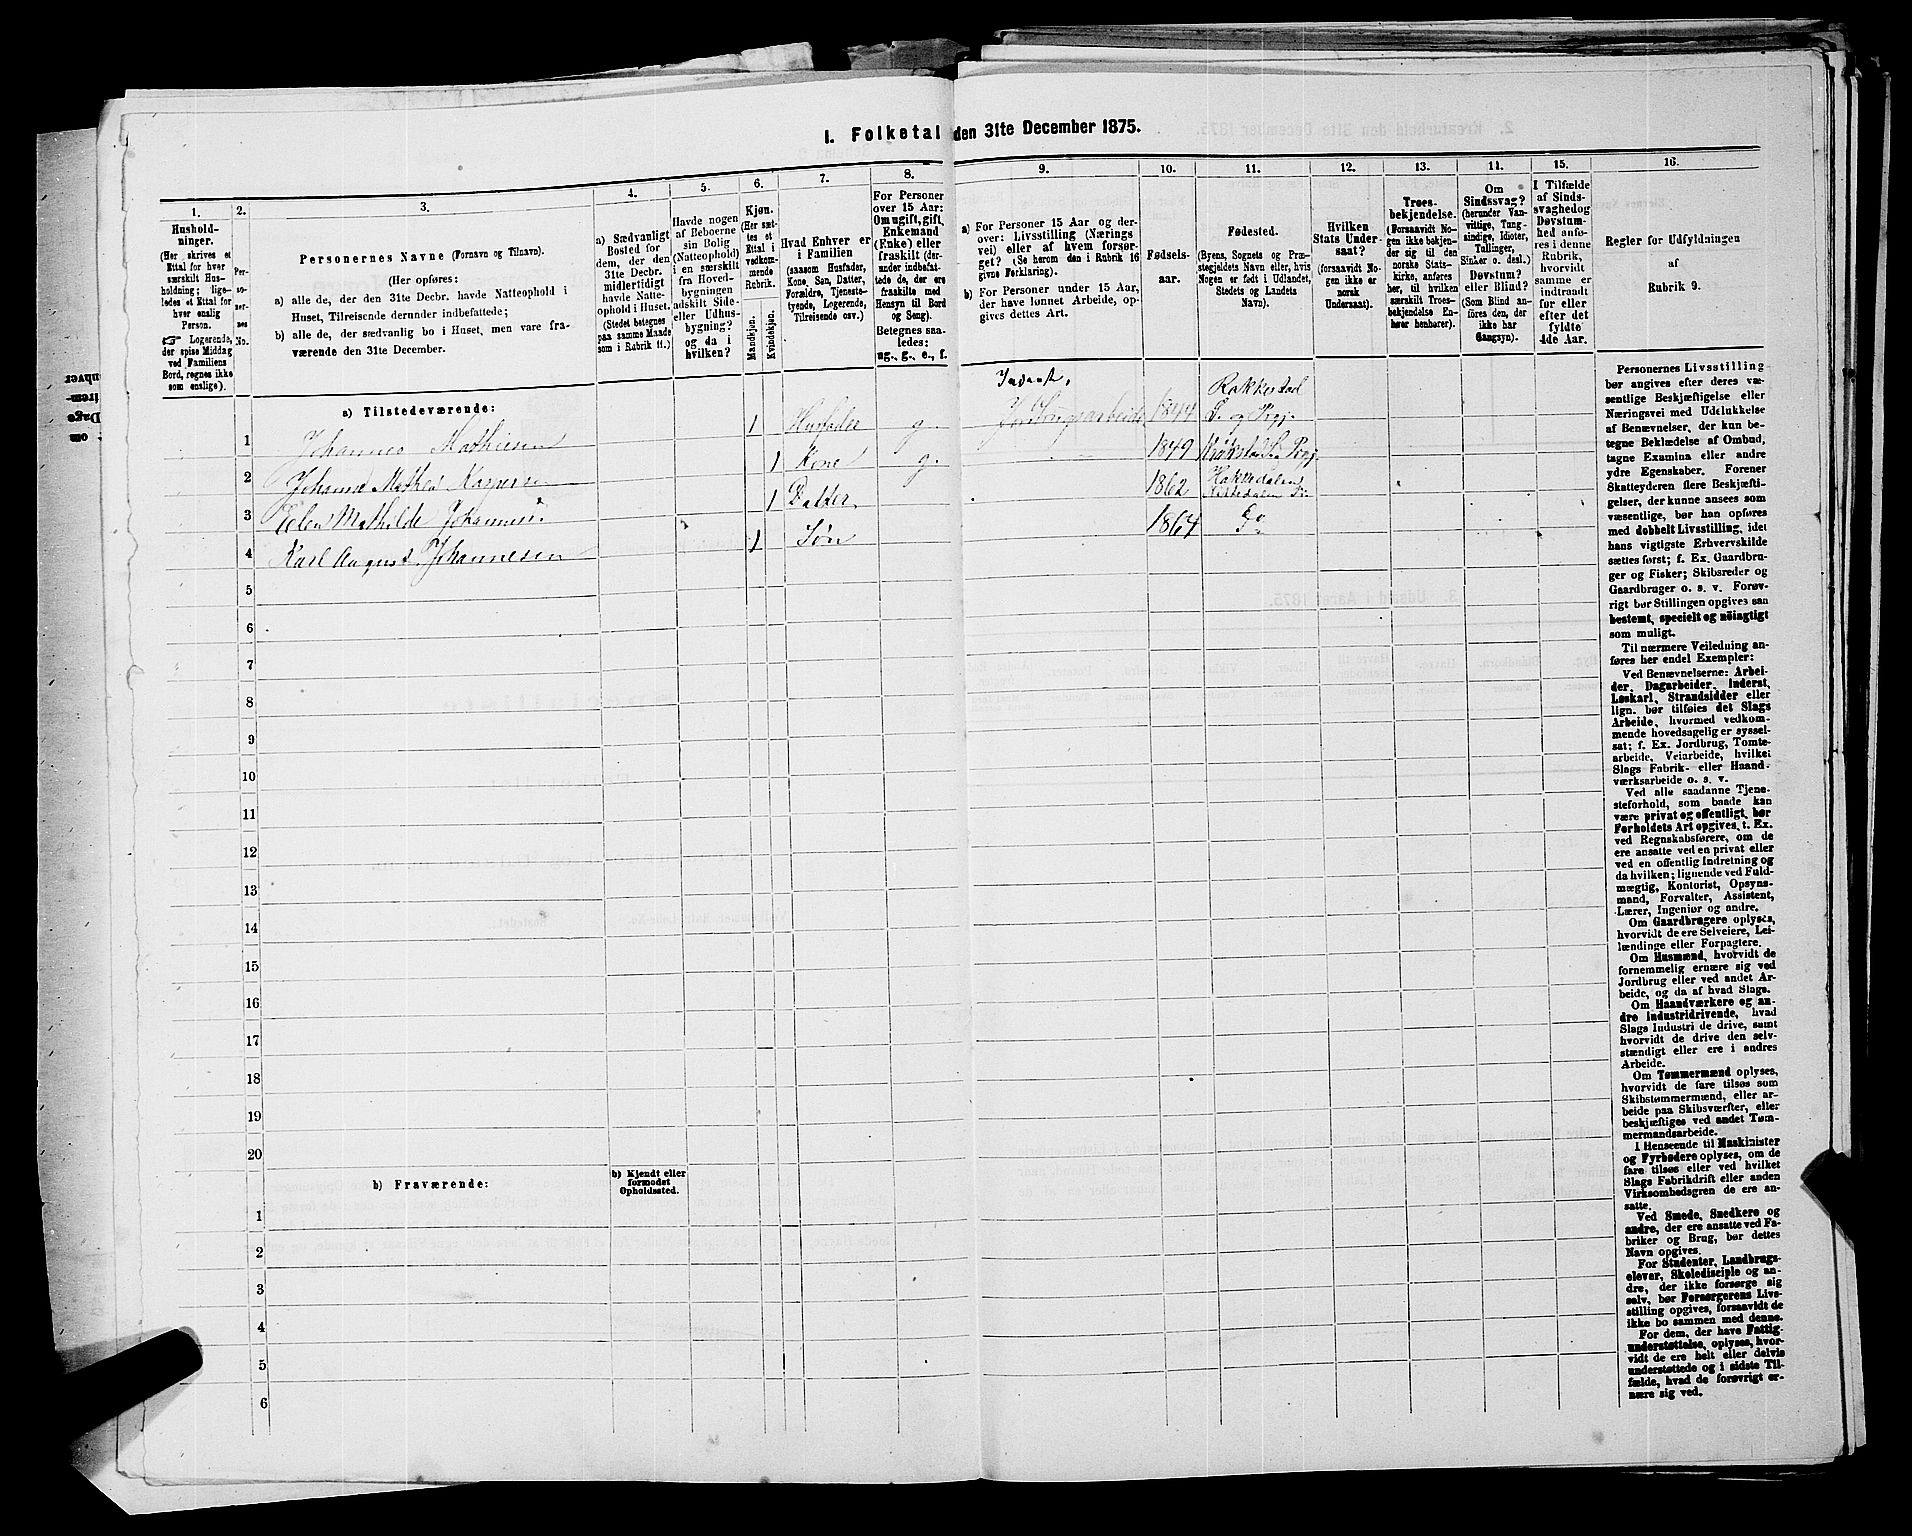 1. Folketal den 31te December 1875.
1.
Hushold-
ninger.
(Her skrives et
Ettal for hver
særskilt Hus-
holdning; lige-
ledes et Ettal for
hver enslig
Person.
☞ Logerende,
der spise Middag
ved Familiens
Bord, regnes ikke
som enslige).
2.
Per-
so-
ner-
nes
No.
3.
Personernes Navne (Fornavn og Tilnavn).
(Her opføres:
a) alle de, der den 31te Decbr. havde Natteophold i
Huset, Tilreisende derunder indbefattede;
b) alle de, der sædvanlig bo i Huset, men vare fra-
værende den 31te December.
4.
a) Sædvanligt
Bosted for
dem, der den
31te Decbr.
midlertidigt
havde Natte-
ophold i Huset.
(Stedet betegnes
paa samme Maade
som i Rubrik 11.)
5.
Havde nogen
af Beboerne
sin Bolig
(Natteophold)
i en særskilt
fra Hoved-
bygningen
adskilt Side-
eller Udhus-
bygning?
og da i
hvilken?
6.
Kjøn.
(Her sæt-
tes et
Ettal i
vedkom-
mende
Rubrik.
Mandkjøn.
Kvindekjøn.
7.
Hvad Enhver er
i Familien
(saasom Husfader,
Kone, Søn, Datter,
Forældre, Tjeneste-
tyende, Logerende,
Tilreisende osv.)
8.
For Personer
over 15 Aar:
Om ugift, gift,
Enkemand
(Enke) eller
fraskilt (der-
under indbefat-
tede de, der ere
fraskilte med
Hensyn til Bord
og Seng).
Betegnes saa-
ledes:
ug., g., e., f.
9.
a) For Personer 15 Aar og der-
over: Livsstilling (Nærings
vei) eller af hvem forsør-
get? (Se herom den i Rubrik 16
givne Forklaring).
b) For Personer under 15 Aar,
der have lønnet Arbeide, op-
gives dettes Art.
10.
Fødsels-
aar.
11.
Fødested.
(Byens, Sognets og Præ-
stegjeldets Navn eller, hvis
Nogen er født i Udlandet,
Stedets og Landets
Navn).
12.
Hvilken
Stats Under-
saat?
(forsaavidt No-
gen ikke er
norsk
Undersaat).
13.
Troes-
bekjendelse.
(Forsaavidt No-
gen ikke bekjen-
der sig til den
norske Stats-
kirke, anføres
her, til hvilken
særskilt Troes-
bekjendelse En-
hver henhører).
14.
Om
Sindssvag?
(herunder Van-
vittige, Tung-
sindige, Idioter,
Tullinger,
Sinker o. desl.)
Døvstum?
eller Blind?
(Som Blind an-
føres den, der
ikke har
Gangsyn).
15.
I Tilfælde
af Sinds-
svaghed og
Døvstum-
hed anfø-
res i denne
Rubrik,
hvorvidt
samme er
indtraadt
før eller
efter det
fyldte
4de Aar.
16.
Regler for Udfyldningen
af
Rubrik 9.
a) Tilstedeværende:
Inderst,
Rakkestad
1 Johannes Mathiesen 1 Husfader g. Jordbrugsarbeide 1844 S. og Prgj.
2 Johanne Mathea 1 Kone g. 1849
3 Mathilde 1 Datter 1862
4 Karl August Johannesen 1 Søn 1864 Do
5
6
7
8
9
10
11
12
13
14
15
16
17
18
19
20
b) Fraværende:
b) Kjendt eller
formodet
Opholdssted.
1
2
3
4
5
6
Personernes Livsstilling
bør angives efter deres væ-
sentlige Beskjæftigelse eller
Næringsvei med Udelukkelse
af Benævnelser, der kun be-
tegne Beklædelse af Ombud,
tagne Examina eller andre
ydre Egenskaber. Forener
Skatteyderen flere Beskjæfti-
gelser, der kunne ansees som
væsentlige, bør han opføres
med dobbelt Livsstilling, idet
hans vigtigste Erhvervskilde
sættes først; f. Ex. Gaardbru-
ger og Fisker; Skibsreder og
Gaardbruger o. s. v. Forøv-
rigt bør Stillingen opgives saa
bestemt, specielt og nöiagtigt
som muligt.
Til nærmere Veiledning an-
føres her endel Exempler:
Ved Benævnelserne: Arbei-
der, Dagarbeider, Inderst,
Løskarl, Strandsidder eller
lign. bør tilføies det Slags
Arbeide, hvormed vedkom-
mende hovedsagelig er syssel-
sat; f. Ex. Jordbrug, Tomte-
arbeide, Veiarbeide, hvilket
Slags Fabrik- eller Haand-
værksarbeide o. s. v.
Ved alle saadanne Tjene-
steforhold, som baade kan
være privat og offentligt, bør
Forholdets Art opgives, t. Ex.
ved Regnskabsførere, om de
ere ansatte ved en privat eller
ved en offentlig Indretning og
da hvilken; lignende ved Fuld-
mægtig, Kontorist, Opsyns-
mand, Forvalter, Assistent,
Lærer, Ingeniør og andre.
Om Gaardbrugere oplyses,
hvorvidt de ere Selveiere, Lei-
lændinge eller Forpagtere.
Om Husmænd, hvorvidt de
fornemmelig ernære sig ved
Jordbrug eller ved andet Ar-
beide, og da af hvad Slags.
Om Haandværkere og an-
dre Industridrivende, hvad
Slags Industri de drive, samt
hvorvidt de drive den selv-
stændigt eller ere i andres
Arbeide.
Om Tømmermænd oplyses,
hvorvidt de fare tilsøs som
Skibstømmermænd, eller ar-
beide paa Skibsværfter, eller
beskjæftiges ved andet Tøm-
mermandsarbeide.
I Henseende til Maskinister
og Fyrbødere oplyses, om de
fare tilsøs eller ved hvilket
Slags Fabrikdrift eller anden
Virksomhedsgren de ere an-
satte.
Ved Smede, Snedkere og
andre, der ere ansatte ved Fa-
briker og Brug, bør dettes
Navn opgives.
For Studenter, Landbrugs-
elever, Skoledisciple og an-
dre, der ikke forsørge sig
selv, bør Forsørgerens Livs-
stilling opgives, forsaavidt de
ikke bo sammen med denne.
For dem, der have Fattig-
understøttelse, oplyses, hvor-
vidt de ere helt eller delvis
understøttede og i sidste Til-
fælde, hvad de forøvrigt er-
nære sig ved.